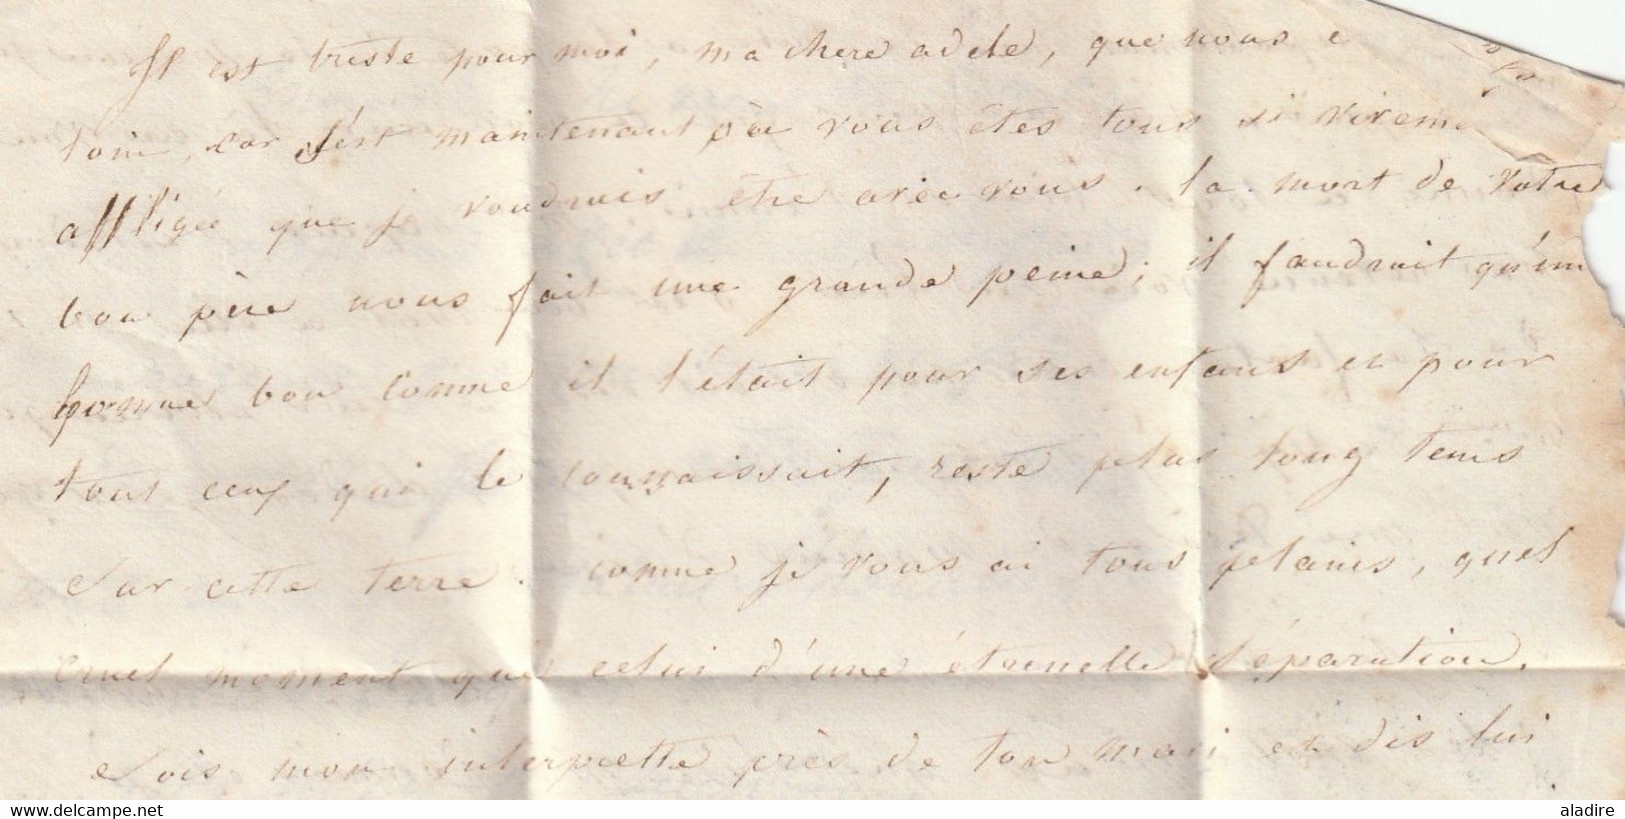 Il est triste pour moi, ma chere adele, que nous
loin, car s'est maintenant où vous êtes tous si vivem
affligé que je voudrais être avec vous. la mort de votre
bon père nous fait une grande peine; il faudrait qu'un
homme bon comme il l'était pour ses enfans et pour
tous ceux qui le connaissait, reste plus long tems
sur cette terre. comme je vous ai tous plains, quel
cruel moment que celui d'une éternelle séparation.
Sois mon interprette près de ton mari et dis lui
aladire